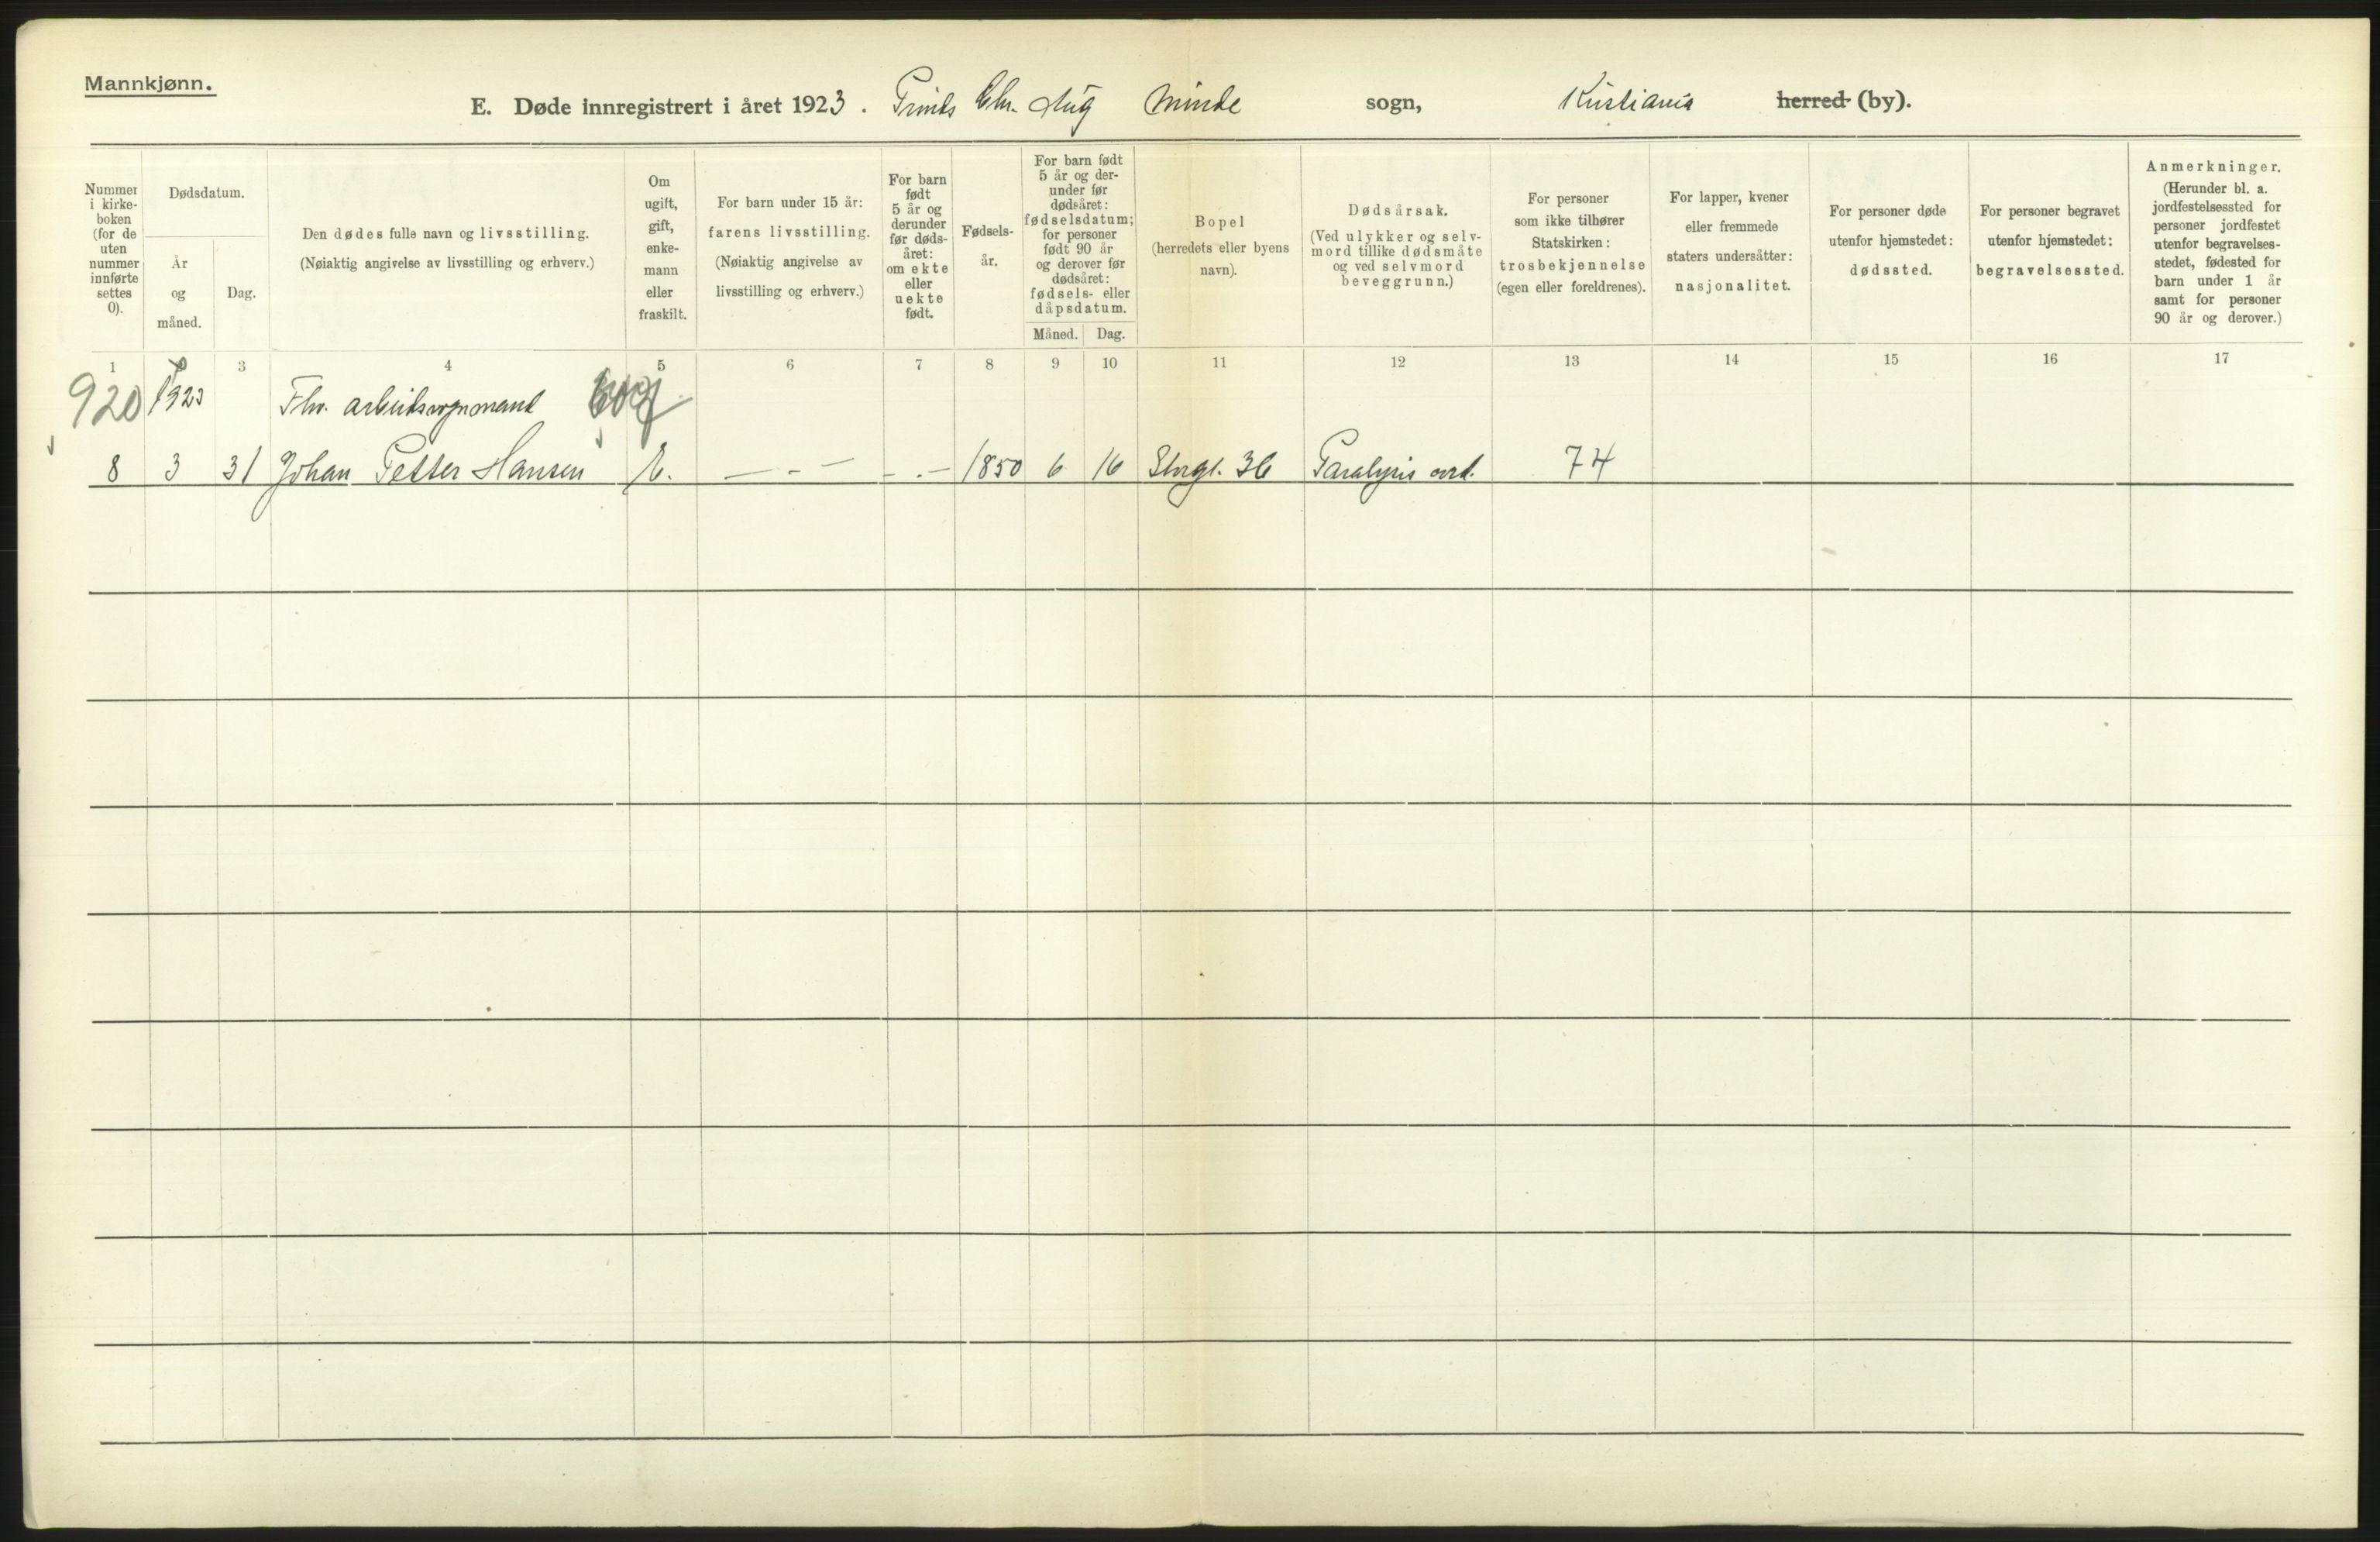 Mannkjønn.
E. Døde innregistrert i året 1923. Prinds Chr. Aug Minde sogn, Kristiania herred (by).
Nummer i kirke-boken (for de uten nummer innførte settes 0).
Dødsdatum.
År og måned.
Dag.
Den dødes fulle navn og livsstilling.
(Nøiaktig angivelse av livsstilling og erhverv.)
Om ugift, gift, enke-mann eller fraskilt.
For barn under 15 år:
farens livsstilling.
(Nøiaktig angivelse av livsstilling og erhverv.)
For barn født 5 år og derunder før døds-året: om ekte eller uekte født.
Fødsels-år.
For barn født 5 år og der-under før dødsåret: fødselsdatum; for personer født 90 år og derover før dødsåret: fødsels- eller dåpsdatum.
Måned.
Dag.
Bopel
(herredets eller byens navn).
Dødsårsak.
(Ved ulykker og selv-mord tillike dødsmåte og ved selvmord beveggrunn.)
For personer som ikke tilhører Statskirken: trosbekjennelse (egen eller foreldrenes).
For lapper, kvener eller fremmede staters undersåtter: nasjonalitet.
For personer døde utenfor hjemstedet: dødssted.
For personer begravet utenfor hjemstedet: begravelsessted.
Anmerkninger.
(Herunder bl. a. jordfestelsessted for personer jordfestet utenfor begravelses-stedet, fødested for barn under 1 år samt for personer 90 år og derover.)
1 3 4 5 6 7 8 9 10 11 12 13 14 15 16 17
920 1923 Fhv. arbeidsvognmand
8 3 31 Johan Petter Hansen E. — - — - . — 1850 6 16 Storgt. 36 Paralysis 74